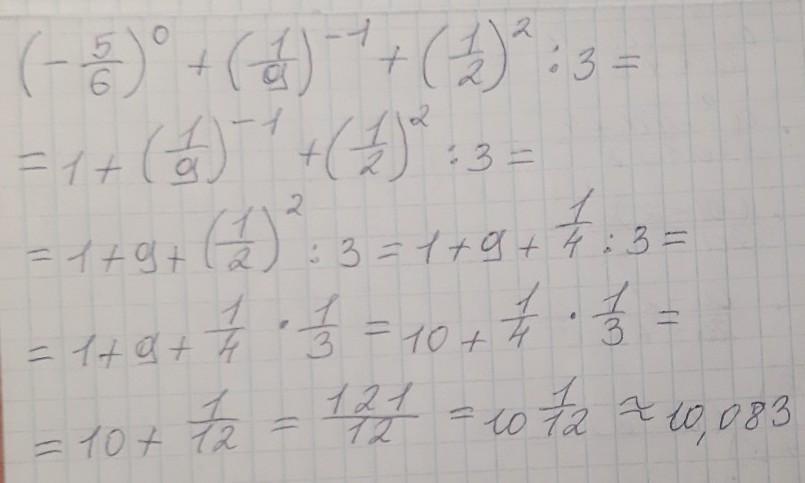 (-5/6)^0 + (1/9)^-1 + (1/2)^2 : 3 =
= 1 + (1/9)^-1 + (1/2)^2 : 3 =
= 1 + 9 + (1/2)^2 : 3 = 1 + 9 + 1/4 : 3 =
= 1 + 9 + 1/4 · 1/3 = 10 + 1/4 · 1/3 =
= 10 + 1/12 = 121/12 = 10 1/12 ≈ 10,083